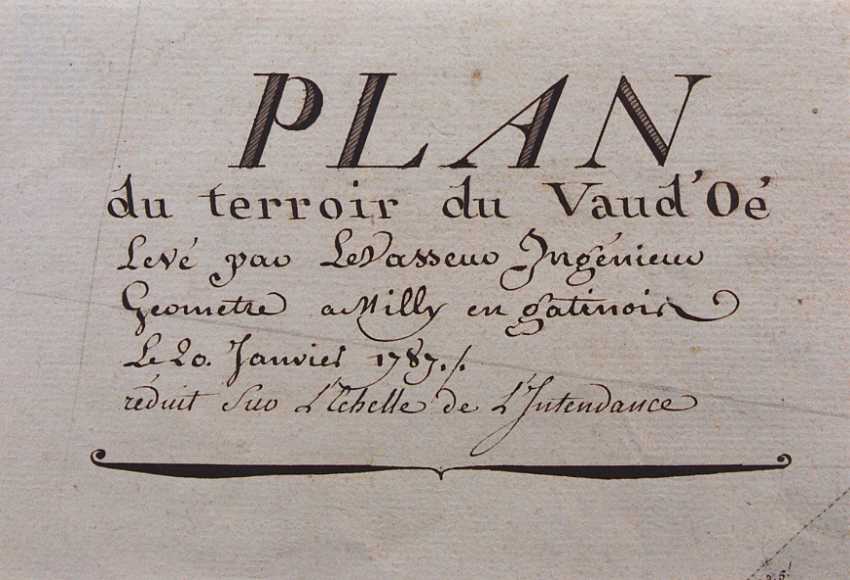 PLAN
du terroir du Vaud'Oé
Levé par LeVasseur Ingénieur
Geometre a Milly en gatinois
Le 20. Janvier 1787./.
réduit Sur L'Echelle de L'Intendance